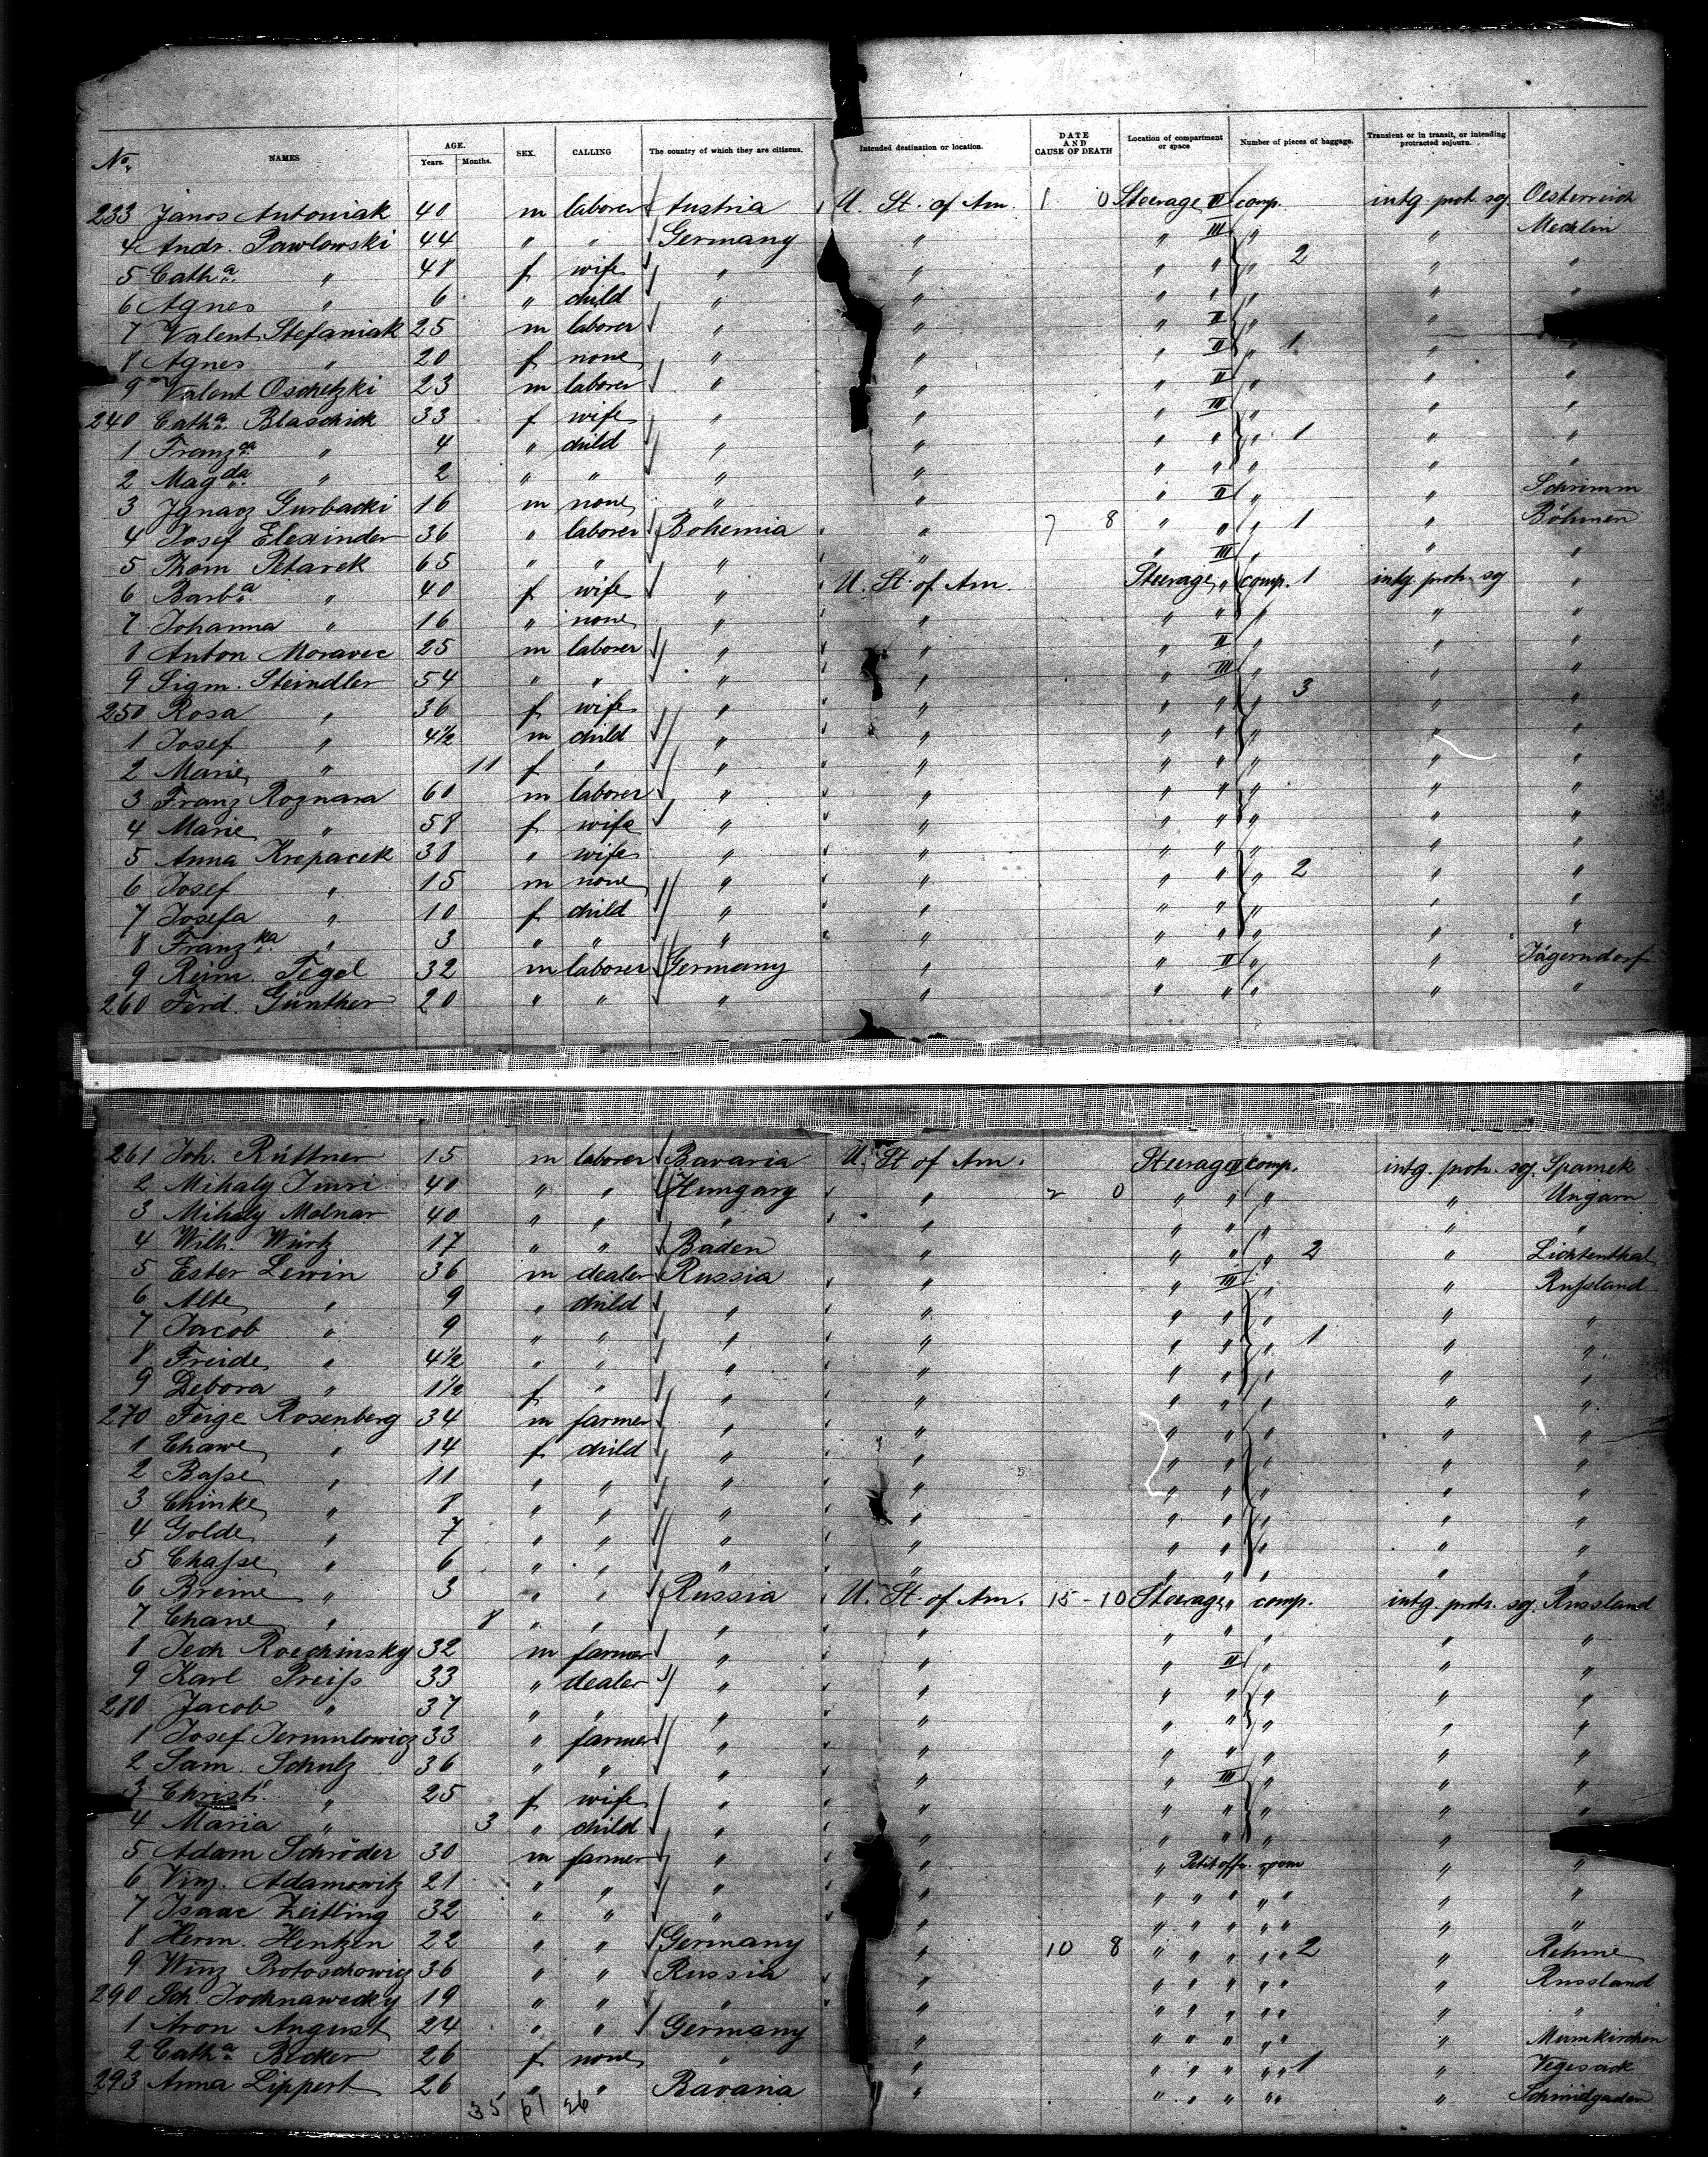 No. NAMES AGE. Years. Months. SEX. CALLING The country of which they are citizens. Intended destination or location. DATE AND CAUSE OF DEATH Location of compartment or space Number of pieces of baggage. Transient or in transit, or intending protracted sojourn.
233 Janos Antoniak 40 m laborer Austria U. St. of Am. 1 0 Steerage II comp. intg. prot. soj Oesterreich
4 Andr. Pawlowski 44 " " Germany " " III " " Mechlin
5 Catha. " 48 f wife " " " " " 2 " "
6 Agnes " 6 " child " " " " " " "
7 Valent Stefaniak 25 m laborer " " " II " "
8 Agnes " 20 f none " " " II " 1 " "
9 Valent Oschetzki 23 m laborer " " " II " " "
240 Catha. Blaschick 33 f wife " " " III " " "
1 Franzca " 4 " child " " " " " 1 " "
2 Magda. " 2 " " " " " " " " "
3 Ignacz Gurbacki 16 m none " " " II " " Schrimm
4 Josef Elexinder 36 " laborer Bohemia " 7 8 " " " 1 " Böhmen
5 Thom Petarek 65 " " " " " III " " "
6 Barba. " 40 f wife " U. St of Am. Steerage " comp. 1 intg. prot. soj "
7 Johanna " 16 " none " " " " " " "
8 Anton Moravec 25 m laborer " " " II " " "
9 Sigm. Steindler 54 " " " " " III " " "
250 Rosa " 36 f wife " " " " " 3 " "
1 Josef " 4½ m child " " " " " " "
2 Marie " 11 f " " " " " " " "
3 Franz Roznara 60 m laborer " " " " " " "
4 Marie " 58 f wife " " " " " " "
5 Anna Krepacek 38 " wife " " " " " " "
6 Josef " 15 m none " " " " " 2 " "
7 Josefa " 10 f child " " " " " " "
8 Franzka. " 3 " " " " " " " "
9 Reim. Tegel 32 m laborer Germany " " II " " Jägerndorf
260 Ferd. Günther 20 " " " " " " " " "
261 Joh. Rüttner 15 m laborer Bavaria U. St of Am. Steerage II comp. intg. prot. soj. Spamek
2 Mihaly Imri 40 " " Hungary " 2 0 " " " " Ungarn
3 Mihaly Molnar 40 " " " " " " " " "
4 Wilh. Würtz 17 " " Baden " " " " 2 " Lichtenthal
5 Ester Lewin 36 m dealer Russia " " III " " Rußland
6 Alte " 9 " child " " " " " " "
7 Jacob " 9 " " " " " " " 1 " "
8 Freide " 4½ " " " " " " " " "
9 Debora " 1½ f " " " " " " " "
270 Feige Rosenberg 34 m farmer " " " " " " "
1 Chawe " 14 f child " " " " " " "
2 Baße " 11 " " " " " " " " "
3 Chinke " 8 " " " " " " " " "
4 Golde " 7 " " " " " " " " "
5 Chaße " 6 " " " " " " " " "
6 Breine " 3 " " Russia U. St. of Am. 15 - 10 Steerage " comp. intg. prot. soj. Russland
7 Chane " 8 " " " " " " " " "
8 Jech Roechinsky 32 m farmer " " " II " " "
9 Karl Preiß 33 " dealer " " " " " " "
280 Jacob " 37 " " " " " " " " "
1 Josef Jermulowicz 33 " farmer " " " " " " "
2 Sam. Schulz 36 " " " " " III " " "
3 Christ. " 25 f wife " " " " " " "
4 Maria " 3 " child " " " " " "
5 Adam Schröder 30 m farmer " " " Petit offr. room " "
6 Vinz. Adamowitz 21 " " " " " " " " " " "
7 Isaac Zeitling 32 " " " " " " " " " " "
8 Herm. Hentzen 22 " " Germany " 10 8 " " " " " 2 " Rehme
9 Winz Protoschowicz 36 " " Russia " " " " " " " Russland
290 Sch. Jochnawecky 19 " " " " " " " " " " "
1 Aron August 24 " " Germany " " " " " " " Munkirchen
2 Catha. Becker 26 f none " " " " " " " 1 " Vegesack
293 Anna Lippert 26 " " Bavaria " " " " " " " Schmidgaden
35 61 26